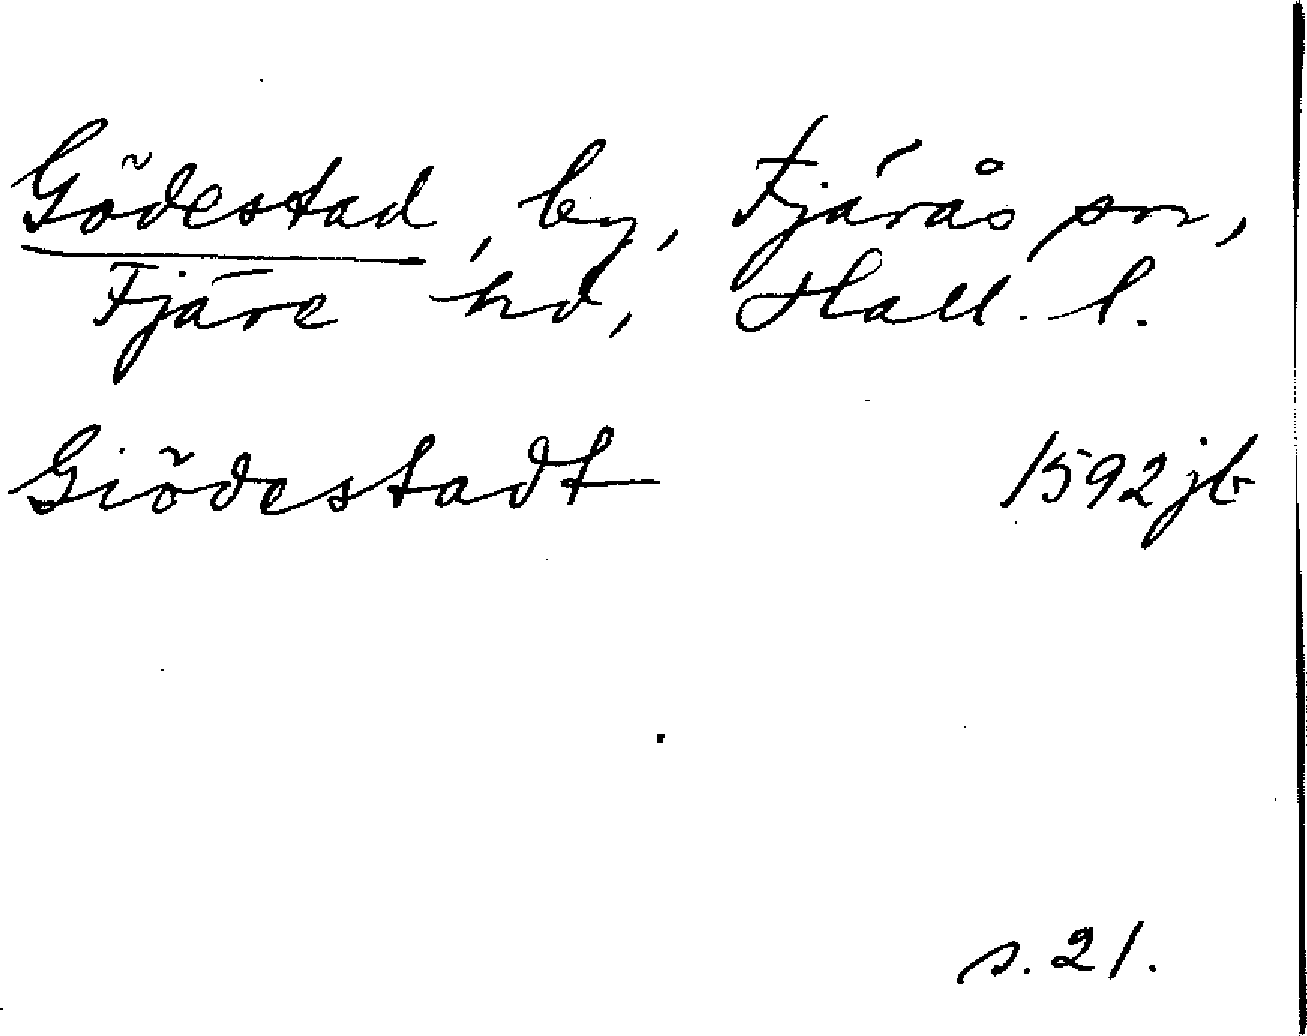 Gödestad, by, Fjärås sn,
Fjäre hd, Hall. l.
Giödestadt 1592 jb
s. 21.